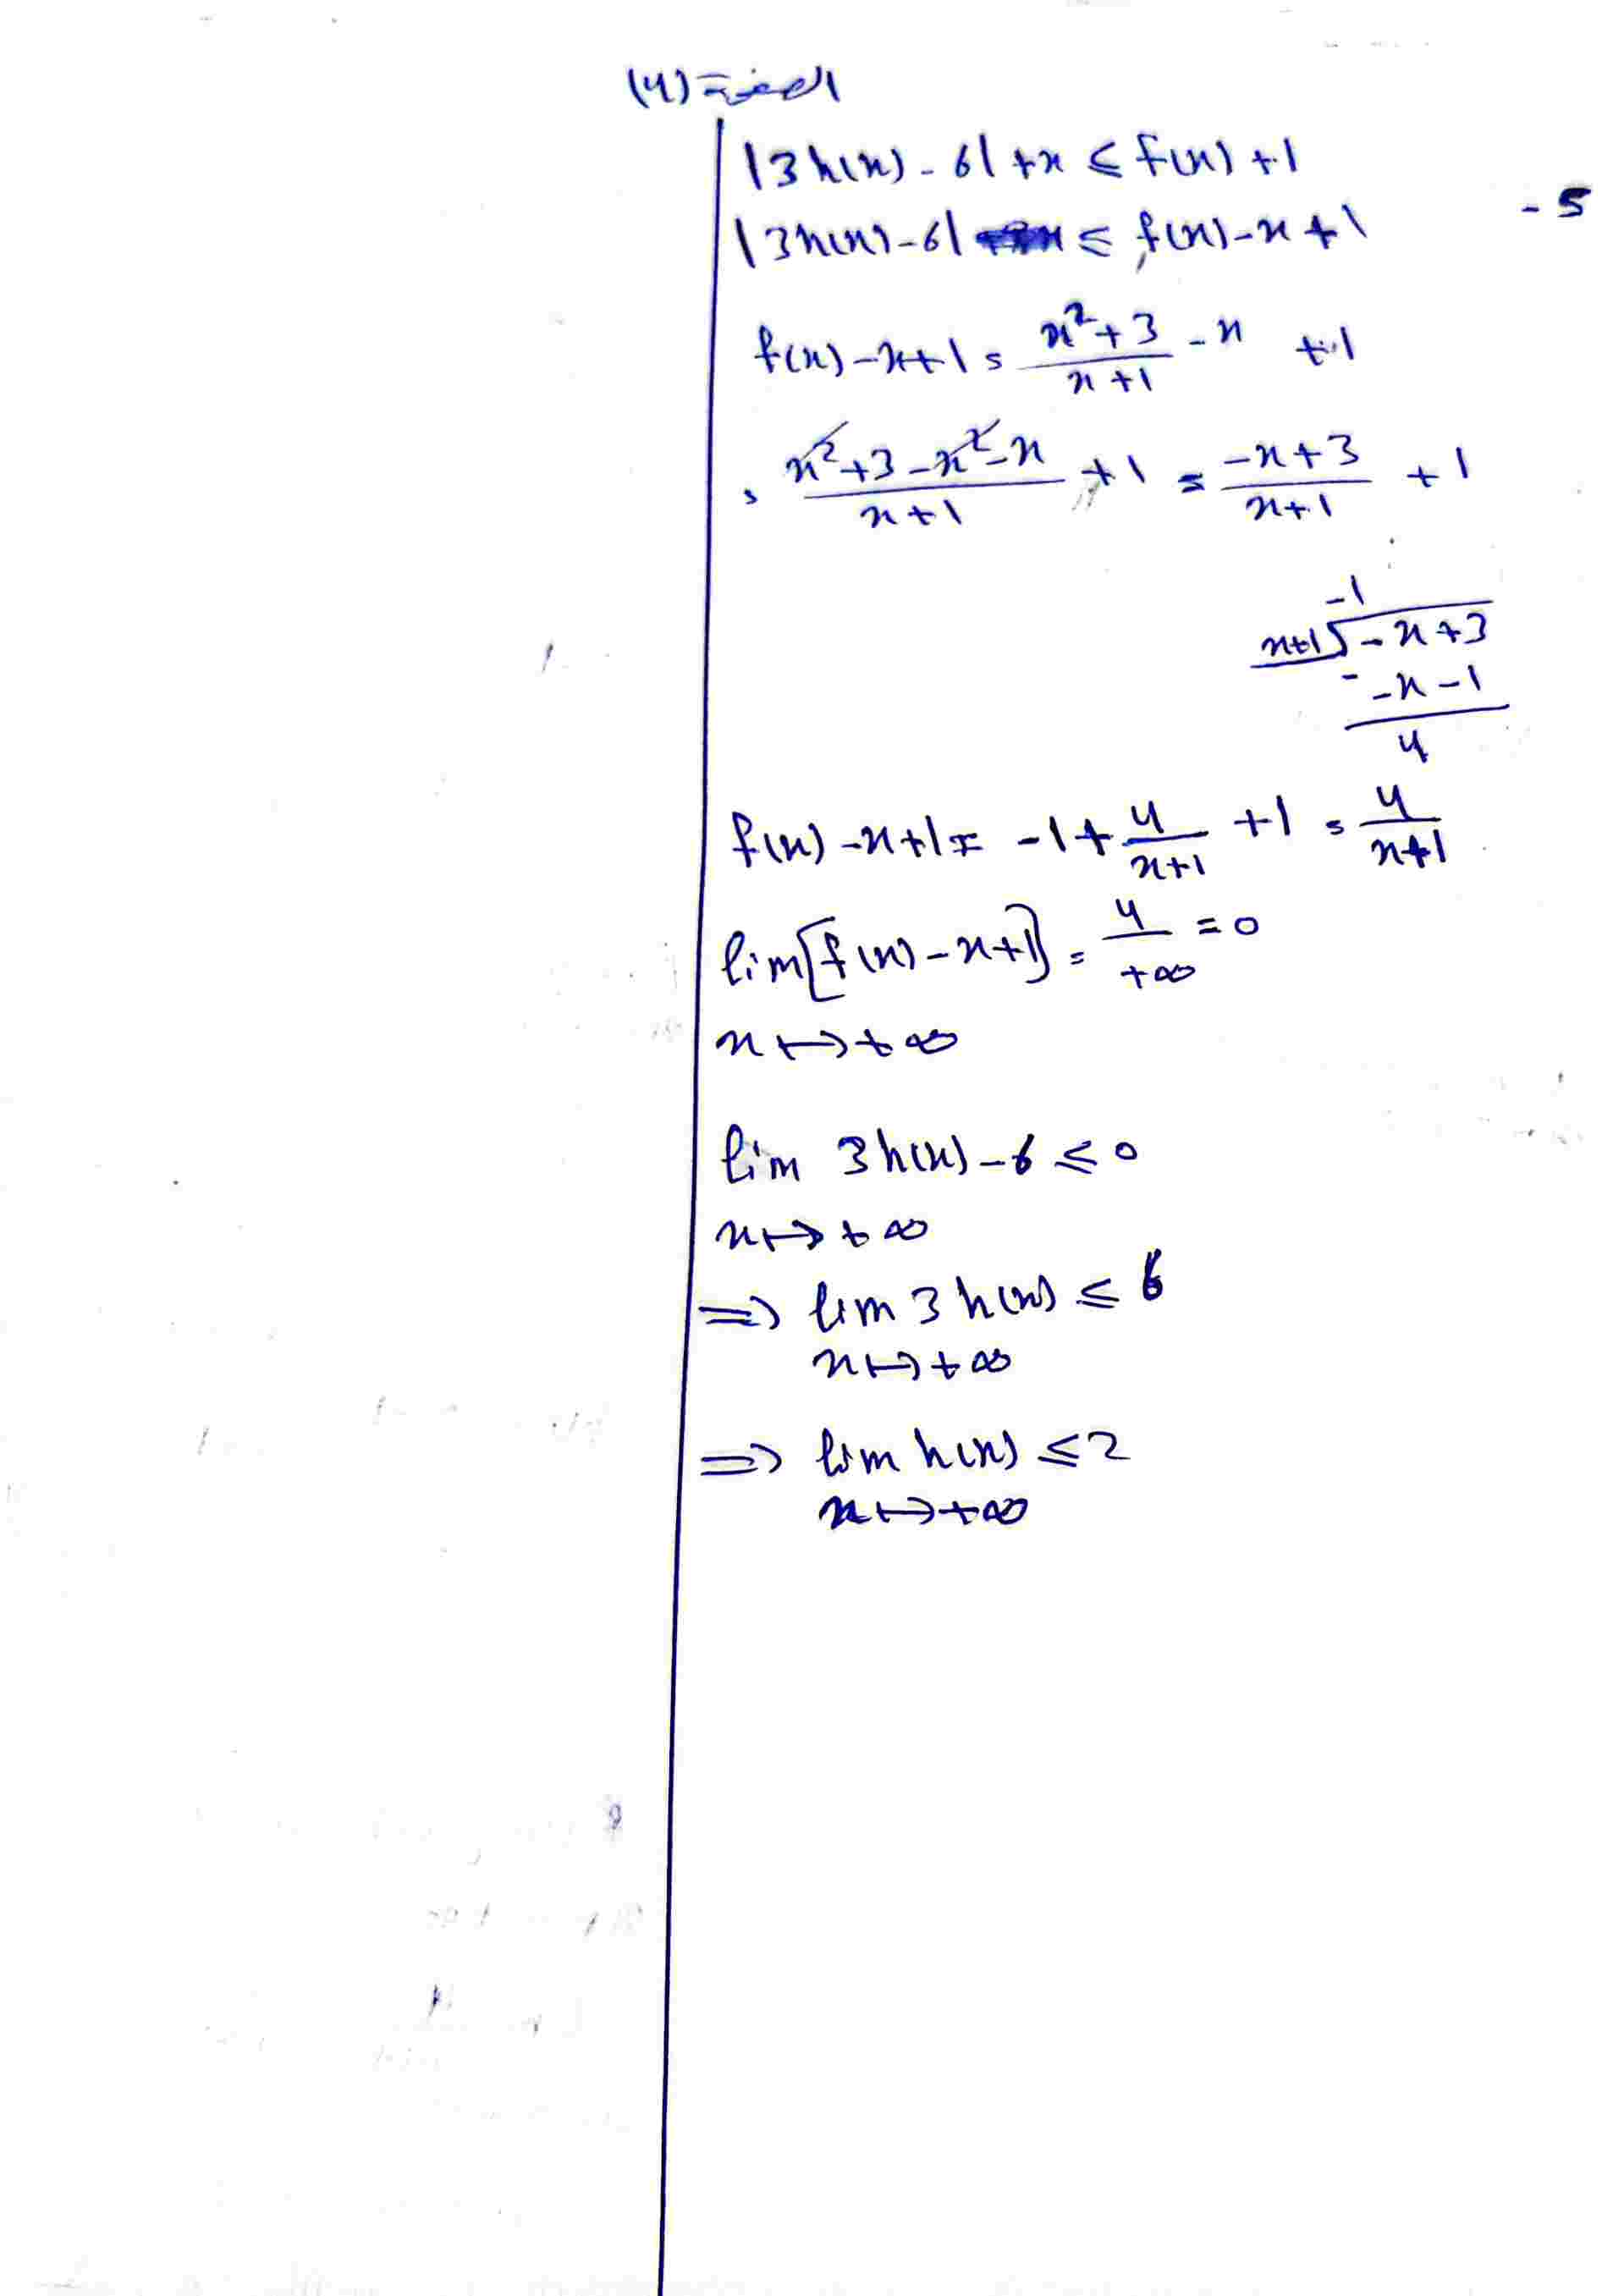 الصفحة (4)
5-
|3h(x) - 6| + x ≤ f(x) + 1
|3h(x) - 6| ≤ f(x) - x + 1
f(x) - x + 1 = \frac{x²+3}{x+1} - x + 1
= \frac{x²+3-x²-x}{x+1} + 1 = \frac{-x+3}{x+1} + 1
-1
x+1 -x+3
- -x-1
4
f(x) - x + 1 = -1 + \frac{4}{x+1} + 1 = \frac{4}{x+1}
lim [f(x) - x + 1] = \frac{4}{+∞} = 0
x ↦ +∞
lim 3h(x) - 6 ≤ 0
x ↦ +∞
⇒ lim 3h(x) ≤ 6
x ↦ +∞
⇒ lim h(x) ≤ 2
x ↦ +∞